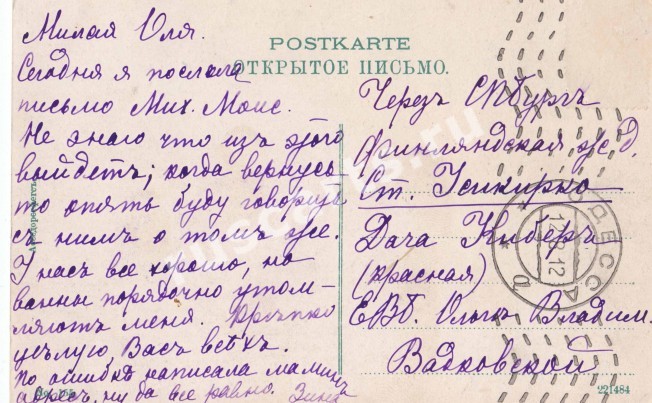 Милая Оля.
Сегодня я послала
письмо Мих. Моис.
Не знаю что изъ этого
выйдетъ; когда вернусь
то опять буду говорить
съ нимъ о томъ же.
У насъ все хорошо, но
ванны порядочно утом-
ляютъ меня. Крѣпко
цѣлую Васъ всѣхъ.
По ошибкѣ написала маминъ
адресъ, ну да все равно. Зина
POSTKARTE
ОТКРЫТОЕ ПИСЬМО.
Черезъ СПбургъ
Финляндская ж. д.
Ст. Усикирко
Дача Киберъ
(красная)
ЕВб. Ольгѣ Владим.
Вадковской
ОДЕССА
221484